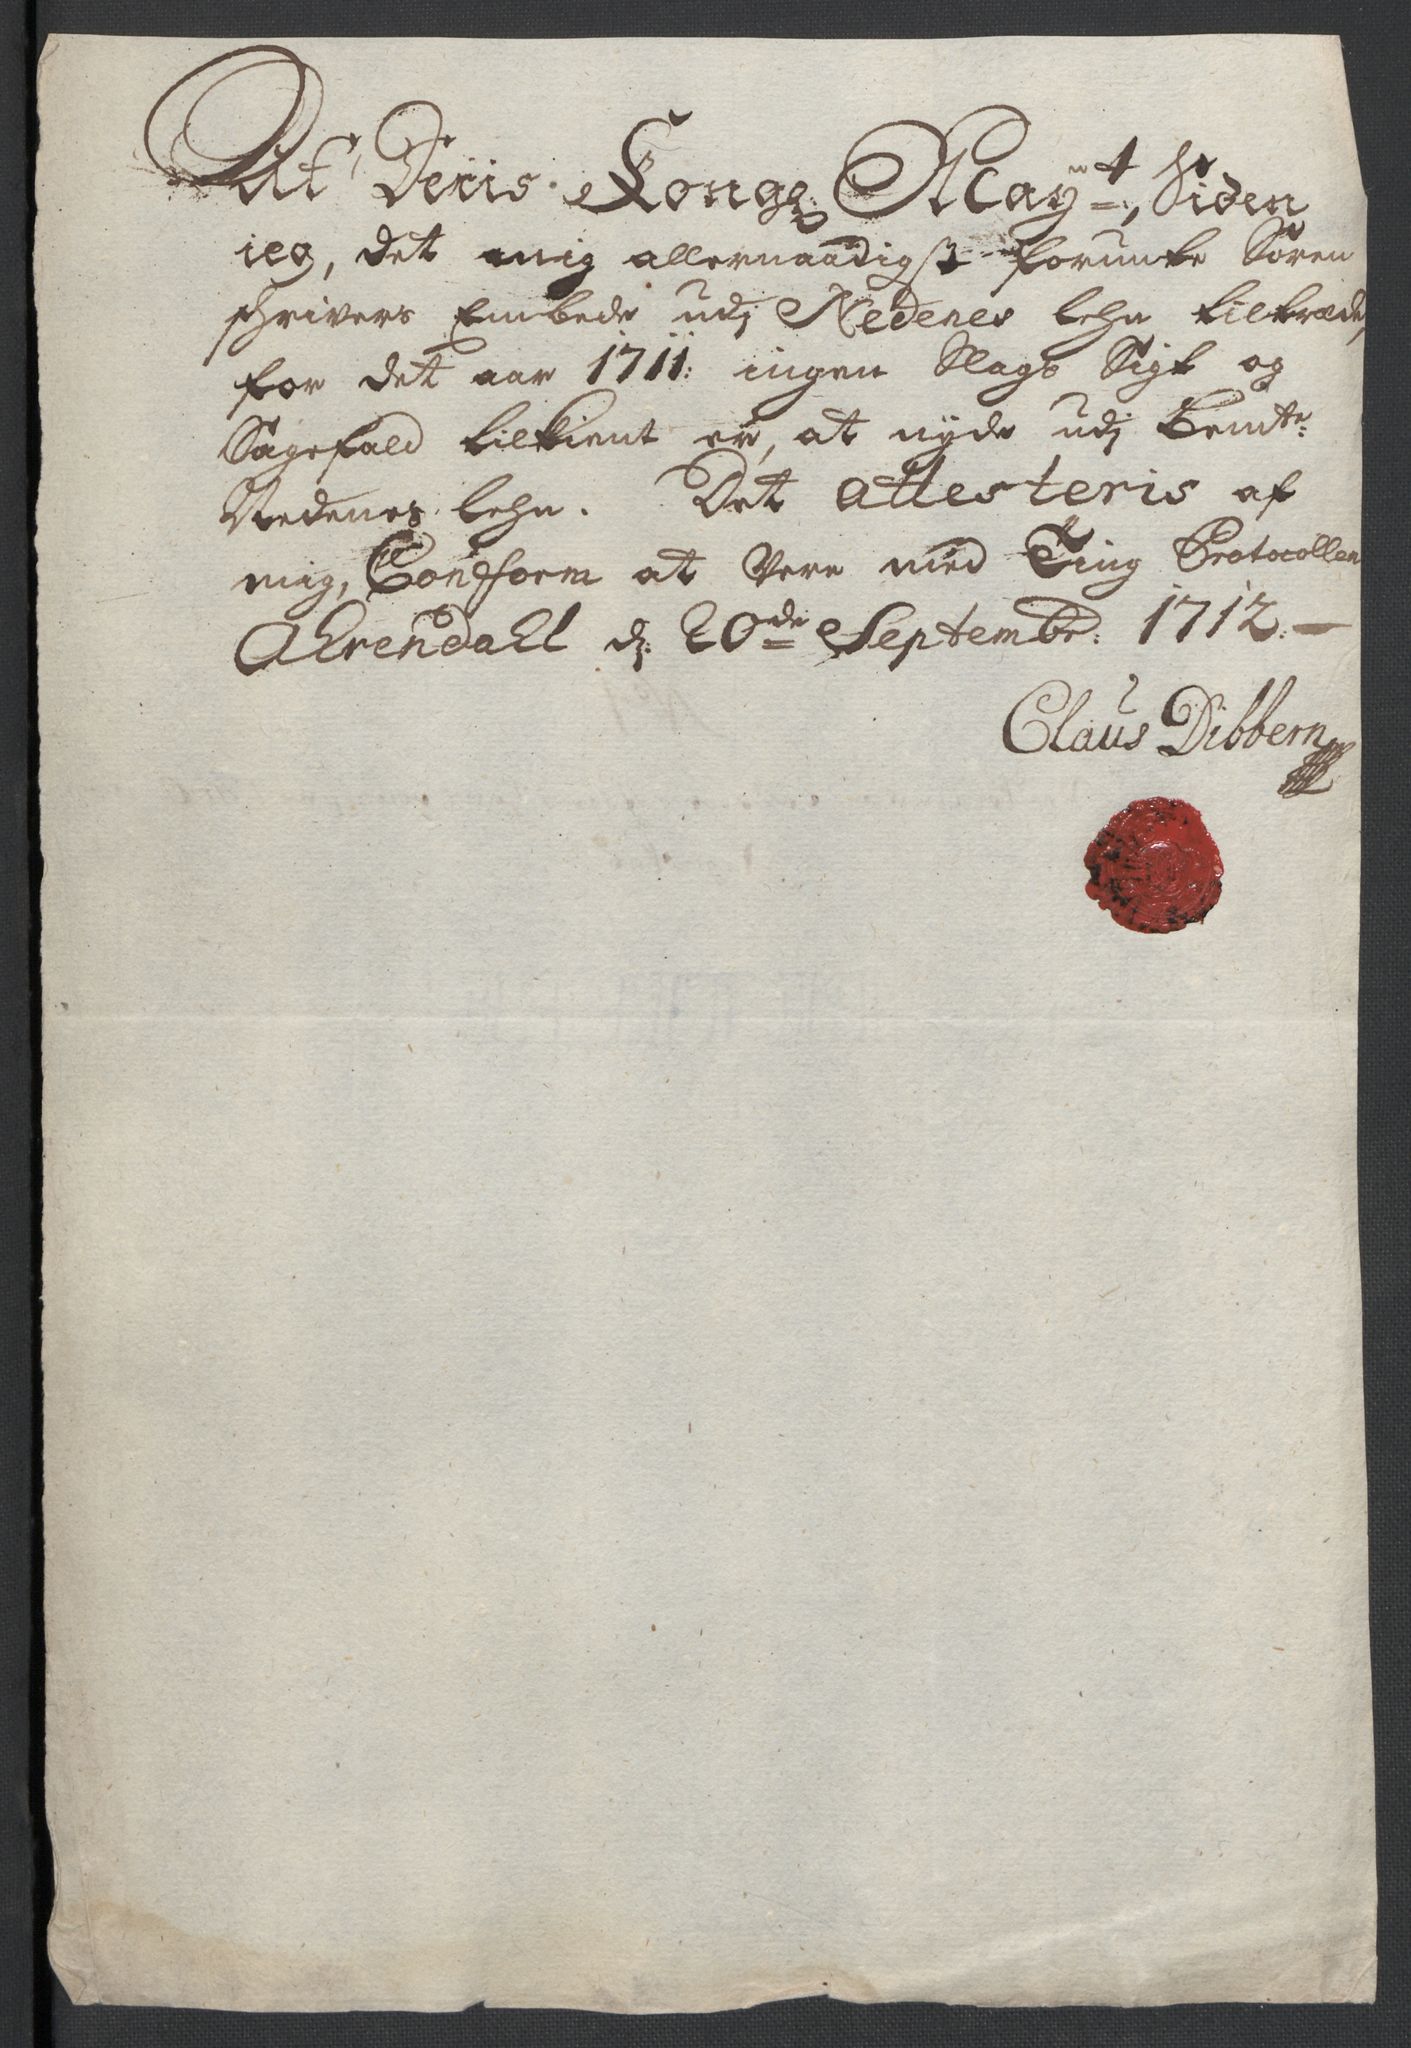 At Deris Kongl: May:t, Siden
ieg, det mig allernaadigst forunte Soren
schrivers Embede udj Nedenes Lehn tiltræde,
for det aar 1711: ingen Slags Sigt og
Sagefald tilkient er, at nyde udj bemte:
Nedenes Lehn. Det attesteris af
mig, Conform at Vere med Ting Protocollen
Ahrendahl d: 20de Septembr: 1712.
Claus Dibbern